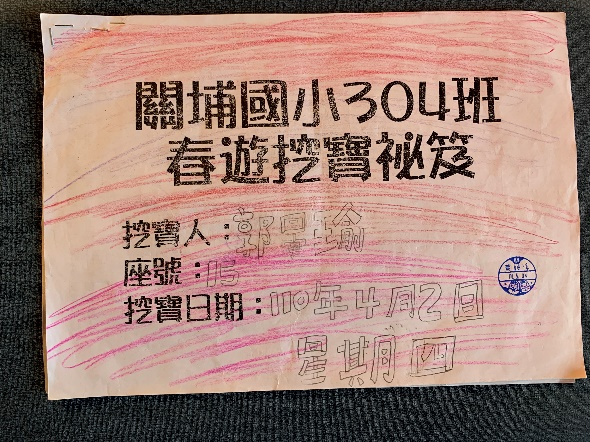 關埔國小304班
春遊挖寶祕笈
挖寶人：郭昱瑜
座號：15
挖寶日期：110年4月2日
星期四